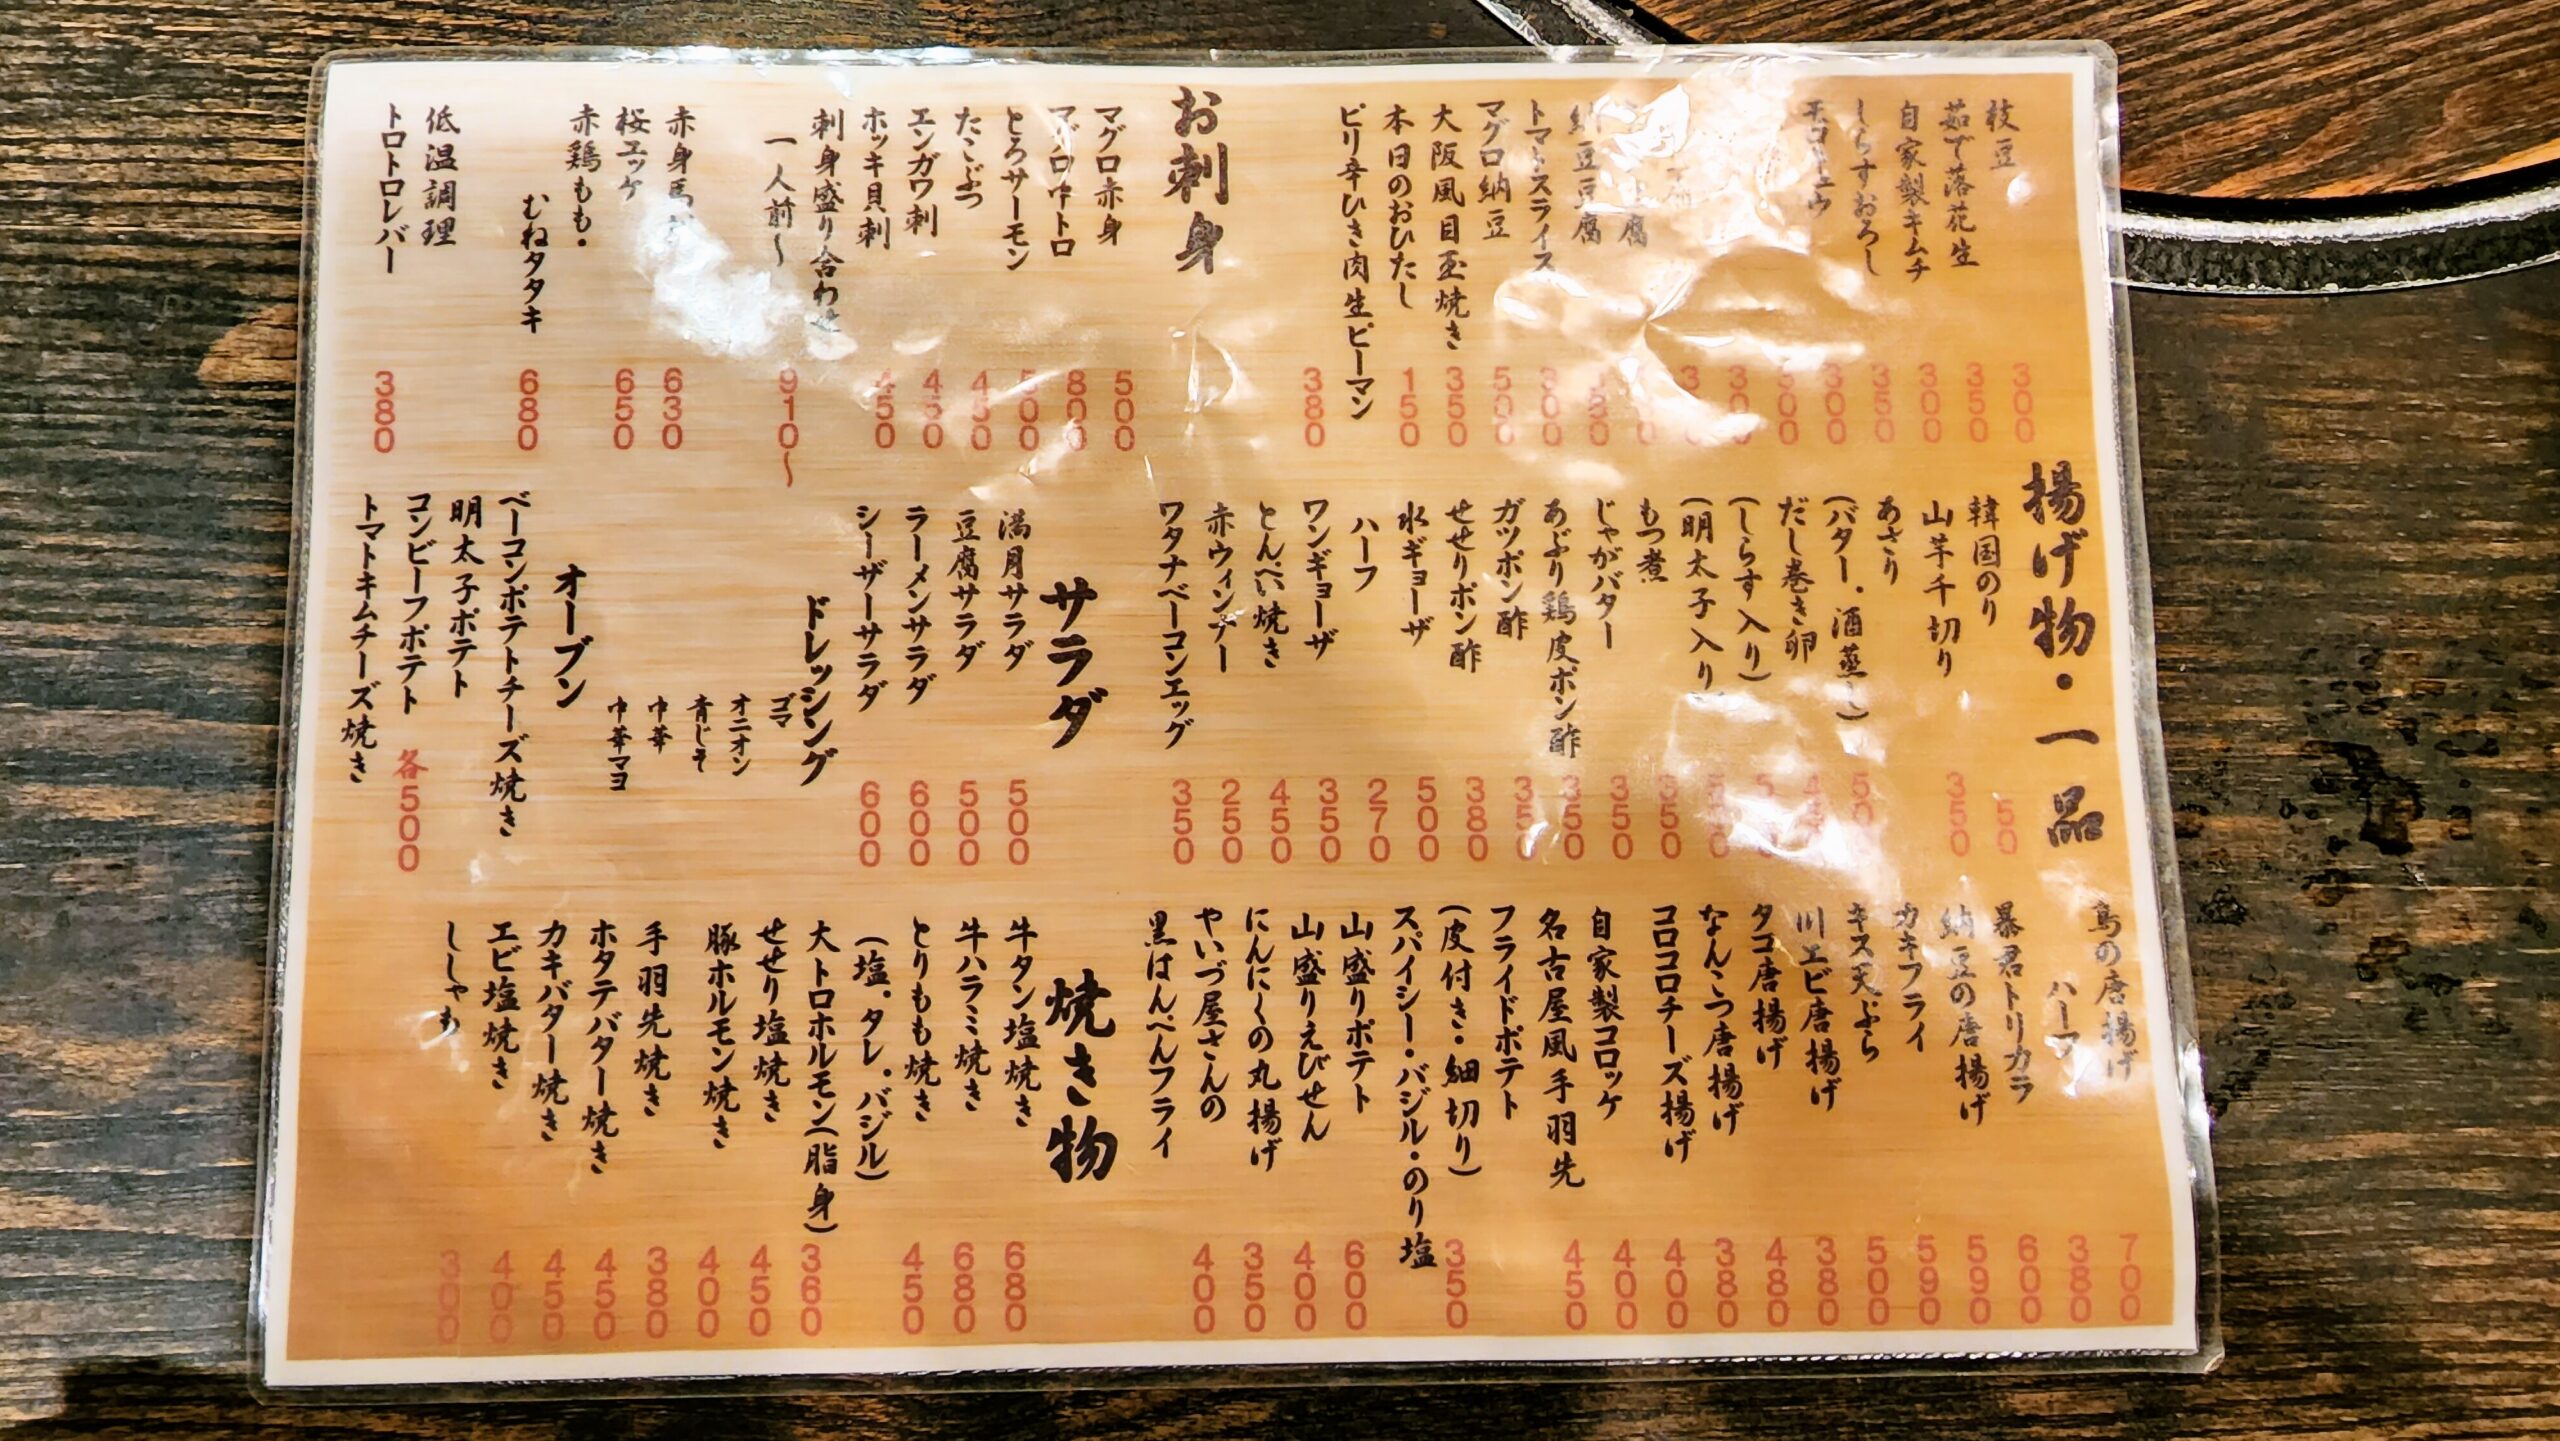 枝豆 300
茹で落花生 350
自家製キムチ 300
しらすおろし 350
モロキュウ 300
納豆豆腐
トマトスライス 300
マグロ納豆 500
大阪風目玉焼き 350
本日のおひたし 150
ピリ辛ひき肉生ピーマン 380
お刺身
マグロ赤身 500
マグロ中トロ 800
とろサーモン 500
たこぶつ 430
エンガワ刺 450
ホッキ貝刺 450
刺身盛り合わせ
一人前〜 910〜
赤身馬 630
桜エッケ 650
赤鶏もも・
むねタタキ 680
低温調理
トロトロレバー 380
揚げ物・一品
韓国のり 50
山芋千切り 350
あさり
(バター・酒蒸し)
だし巻き卵
(しらす入り)
(明太子入り)
もつ煮 350
じゃがバター 350
あぶり鶏皮ポン酢 350
ガツポン酢 350
せせりポン酢 380
水ギョーザ 500
ハーフ 270
ワンギョーザ 350
とんぺい焼き 450
赤ウィンナー 250
ワタナベーコンエッグ 350
サラダ
満月サラダ 500
豆腐サラダ 500
ラーメンサラダ 600
シーザーサラダ 600
ドレッシング
ゴマ
オニオン
青じそ
中華
中華マヨ
オーブン
ベーコンポテトチーズ焼き
明太子ポテト
コンビーフポテト 各500
トマトキムチーズ焼き
鳥の唐揚げ 700
ハーフ 380
暴君トリカラ 600
納豆の唐揚げ 590
カキフライ 590
キス天ぷら 500
川エビ唐揚げ 380
タコ唐揚げ 480
なんこつ唐揚げ 380
コロコロチーズ揚げ 400
自家製コロッケ 400
名古屋風手羽先 450
フライドポテト
(皮付き・細切り) 350
スパイシー・バジル・のり塩
山盛りポテト 600
山盛りえびせん 400
にんにくの丸揚げ 350
やいづ屋さんの 400
黒はんぺんフライ
焼き物
牛タン塩焼き 680
牛ハラミ焼き 680
とりもも焼き 450
(塩・タレ・バジル)
大トロホルモン(脂身) 360
せせり塩焼き 450
豚ホルモン焼き 400
手羽先焼き 380
ホタテバター焼き 450
カキバター焼き 450
エビ塩焼き 400
ししゃも 300